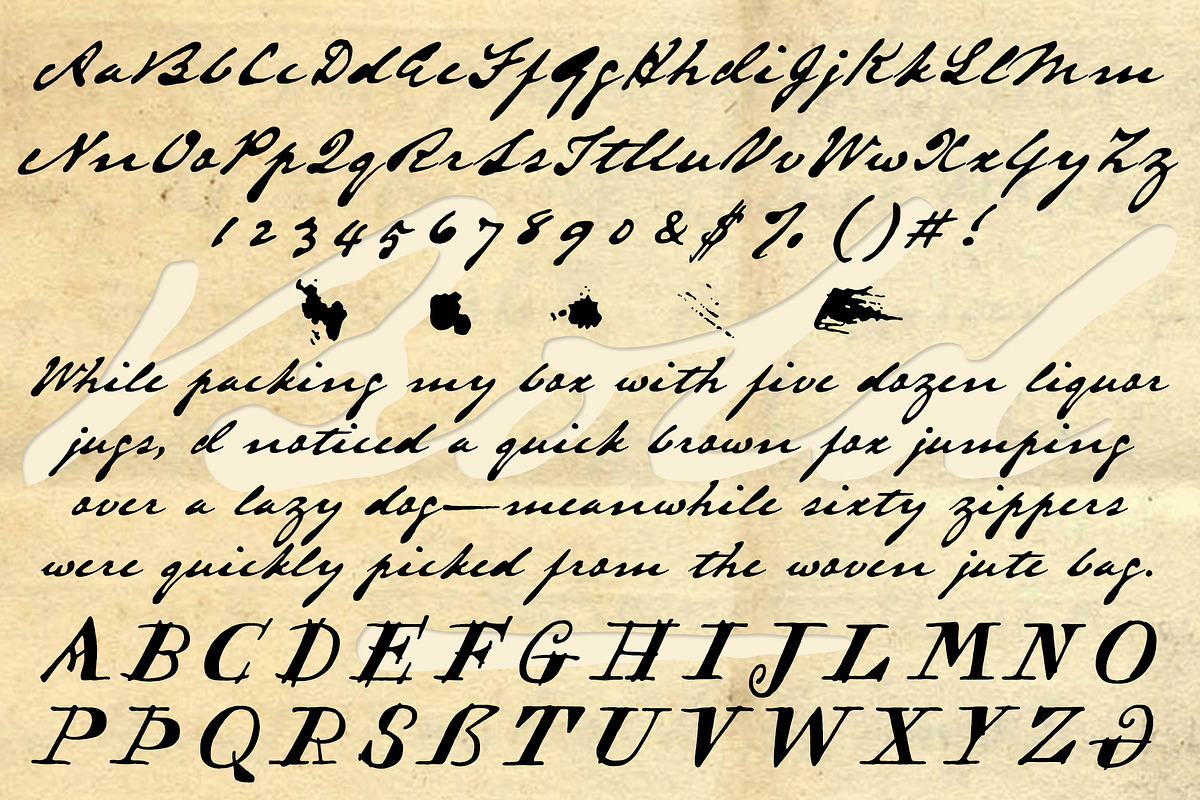 AaBbCcDdEeFfGgHhIiJjKkLlMm
NnOoPpQqRrSsTtUuVvWwXxYyZz
1234567890&$%()#!
Bold
While packing my box with five dozen liquor
jugs, I noticed a quick brown fox jumping
over a lazy dog—meanwhile sixty zippers
were quickly picked from the woven jute bag.
ABCDEFGHIJLMNO
PÞQRSßTUVWXYZ